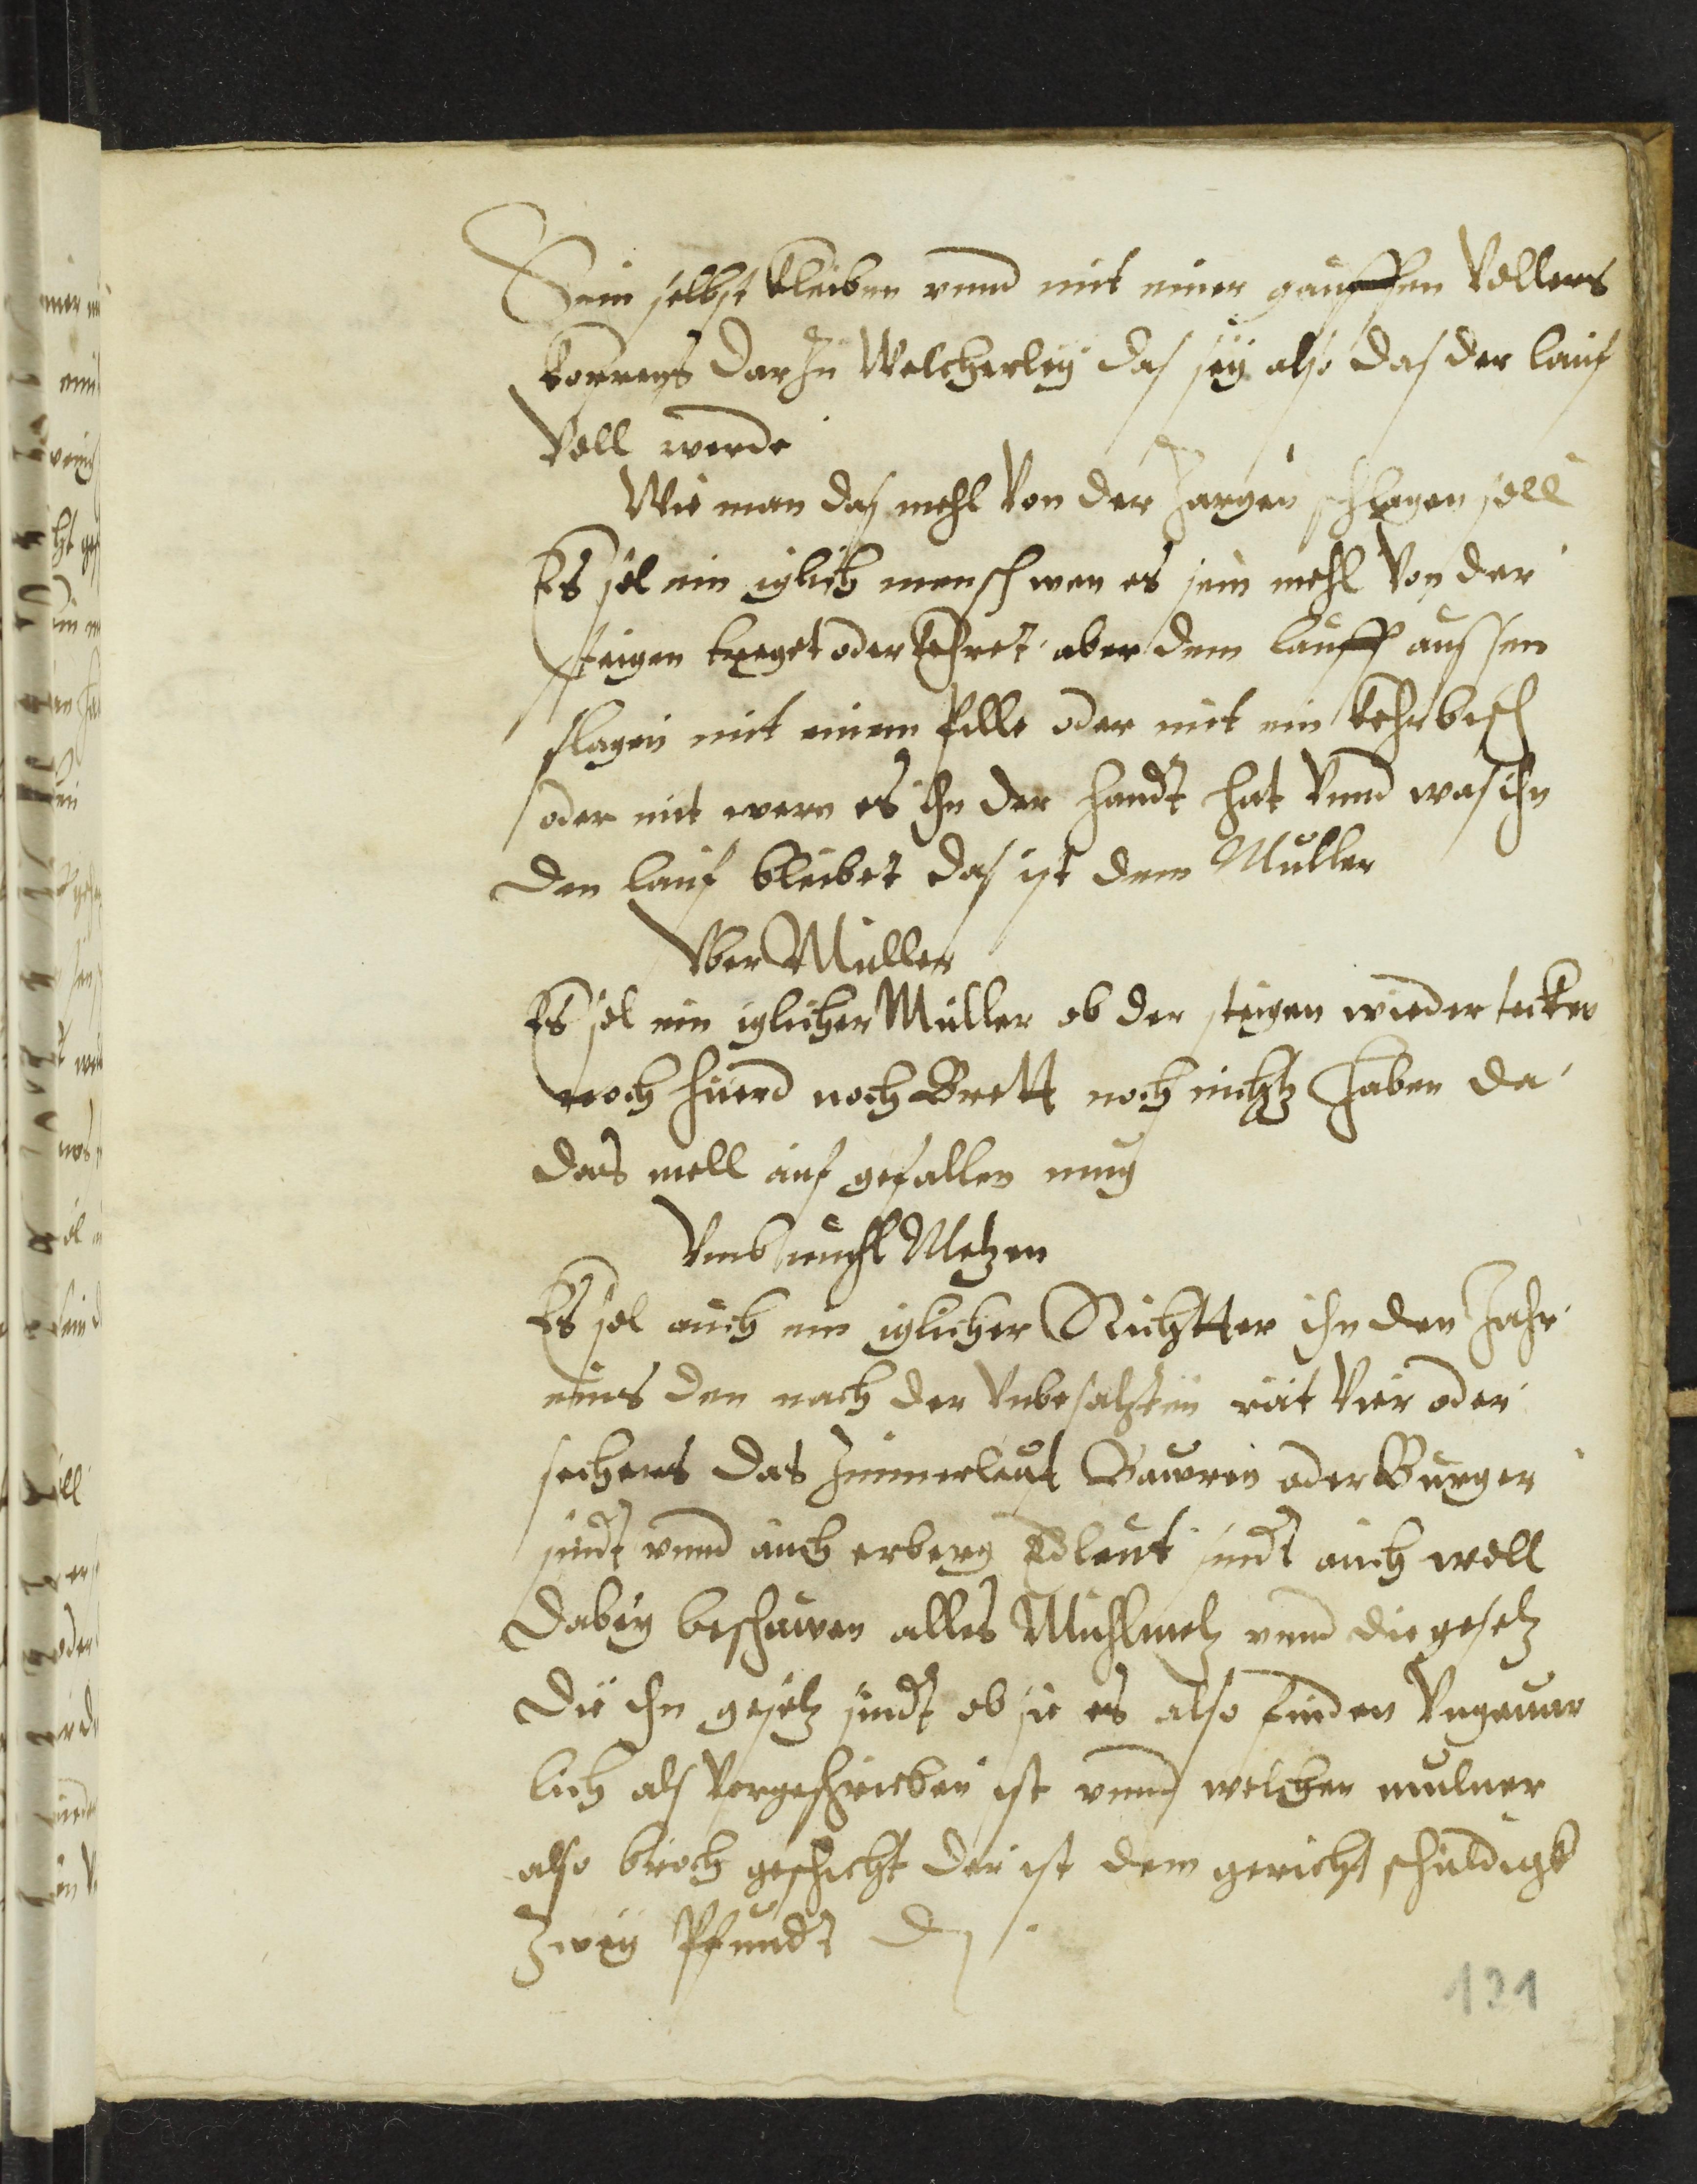 Sein selbst kleiben vnnd mit einer gauffen Vollens
kornns dar In Welcherley das sey also das der lauf
Voll werde
Wie man das mehl Von der Zargen schlagen soll
Es sol ein iglich mensch wen es sein mehl Von der
steigen treget oder kehret aber dem lauff aussen
slagen mit einem fille oder mit ein kehrbesch
oder mit wem es In der handt hat Vnnd was ihn
den lauf bleibet das ist dem Muller
Vber Muller
Es sol ein iglicher Müller ob der steigen wieder tecken
noch huerd noch Brett noch nichtz haben da
das mell auf gefallen mug
Vmb muhl Metzen
Es sol auch ein iglicher Richtter ihn den Jahr
eins den nach der rat Vier oder
sechens das Zimmerleut Bawren oder Burger
sindt vnnd auch erberg Edleut sindt auch woll
Dabey beschawen alles Muhlmetz vnnd die gesetz
Die In gesetz sindt ob sie es also finden Vngeuar
lich als Vorgeschrieben ist vnnd welchen mulner
also broch geschicht der ist dem gericht schuldigk
Zwey Pfundt d
121